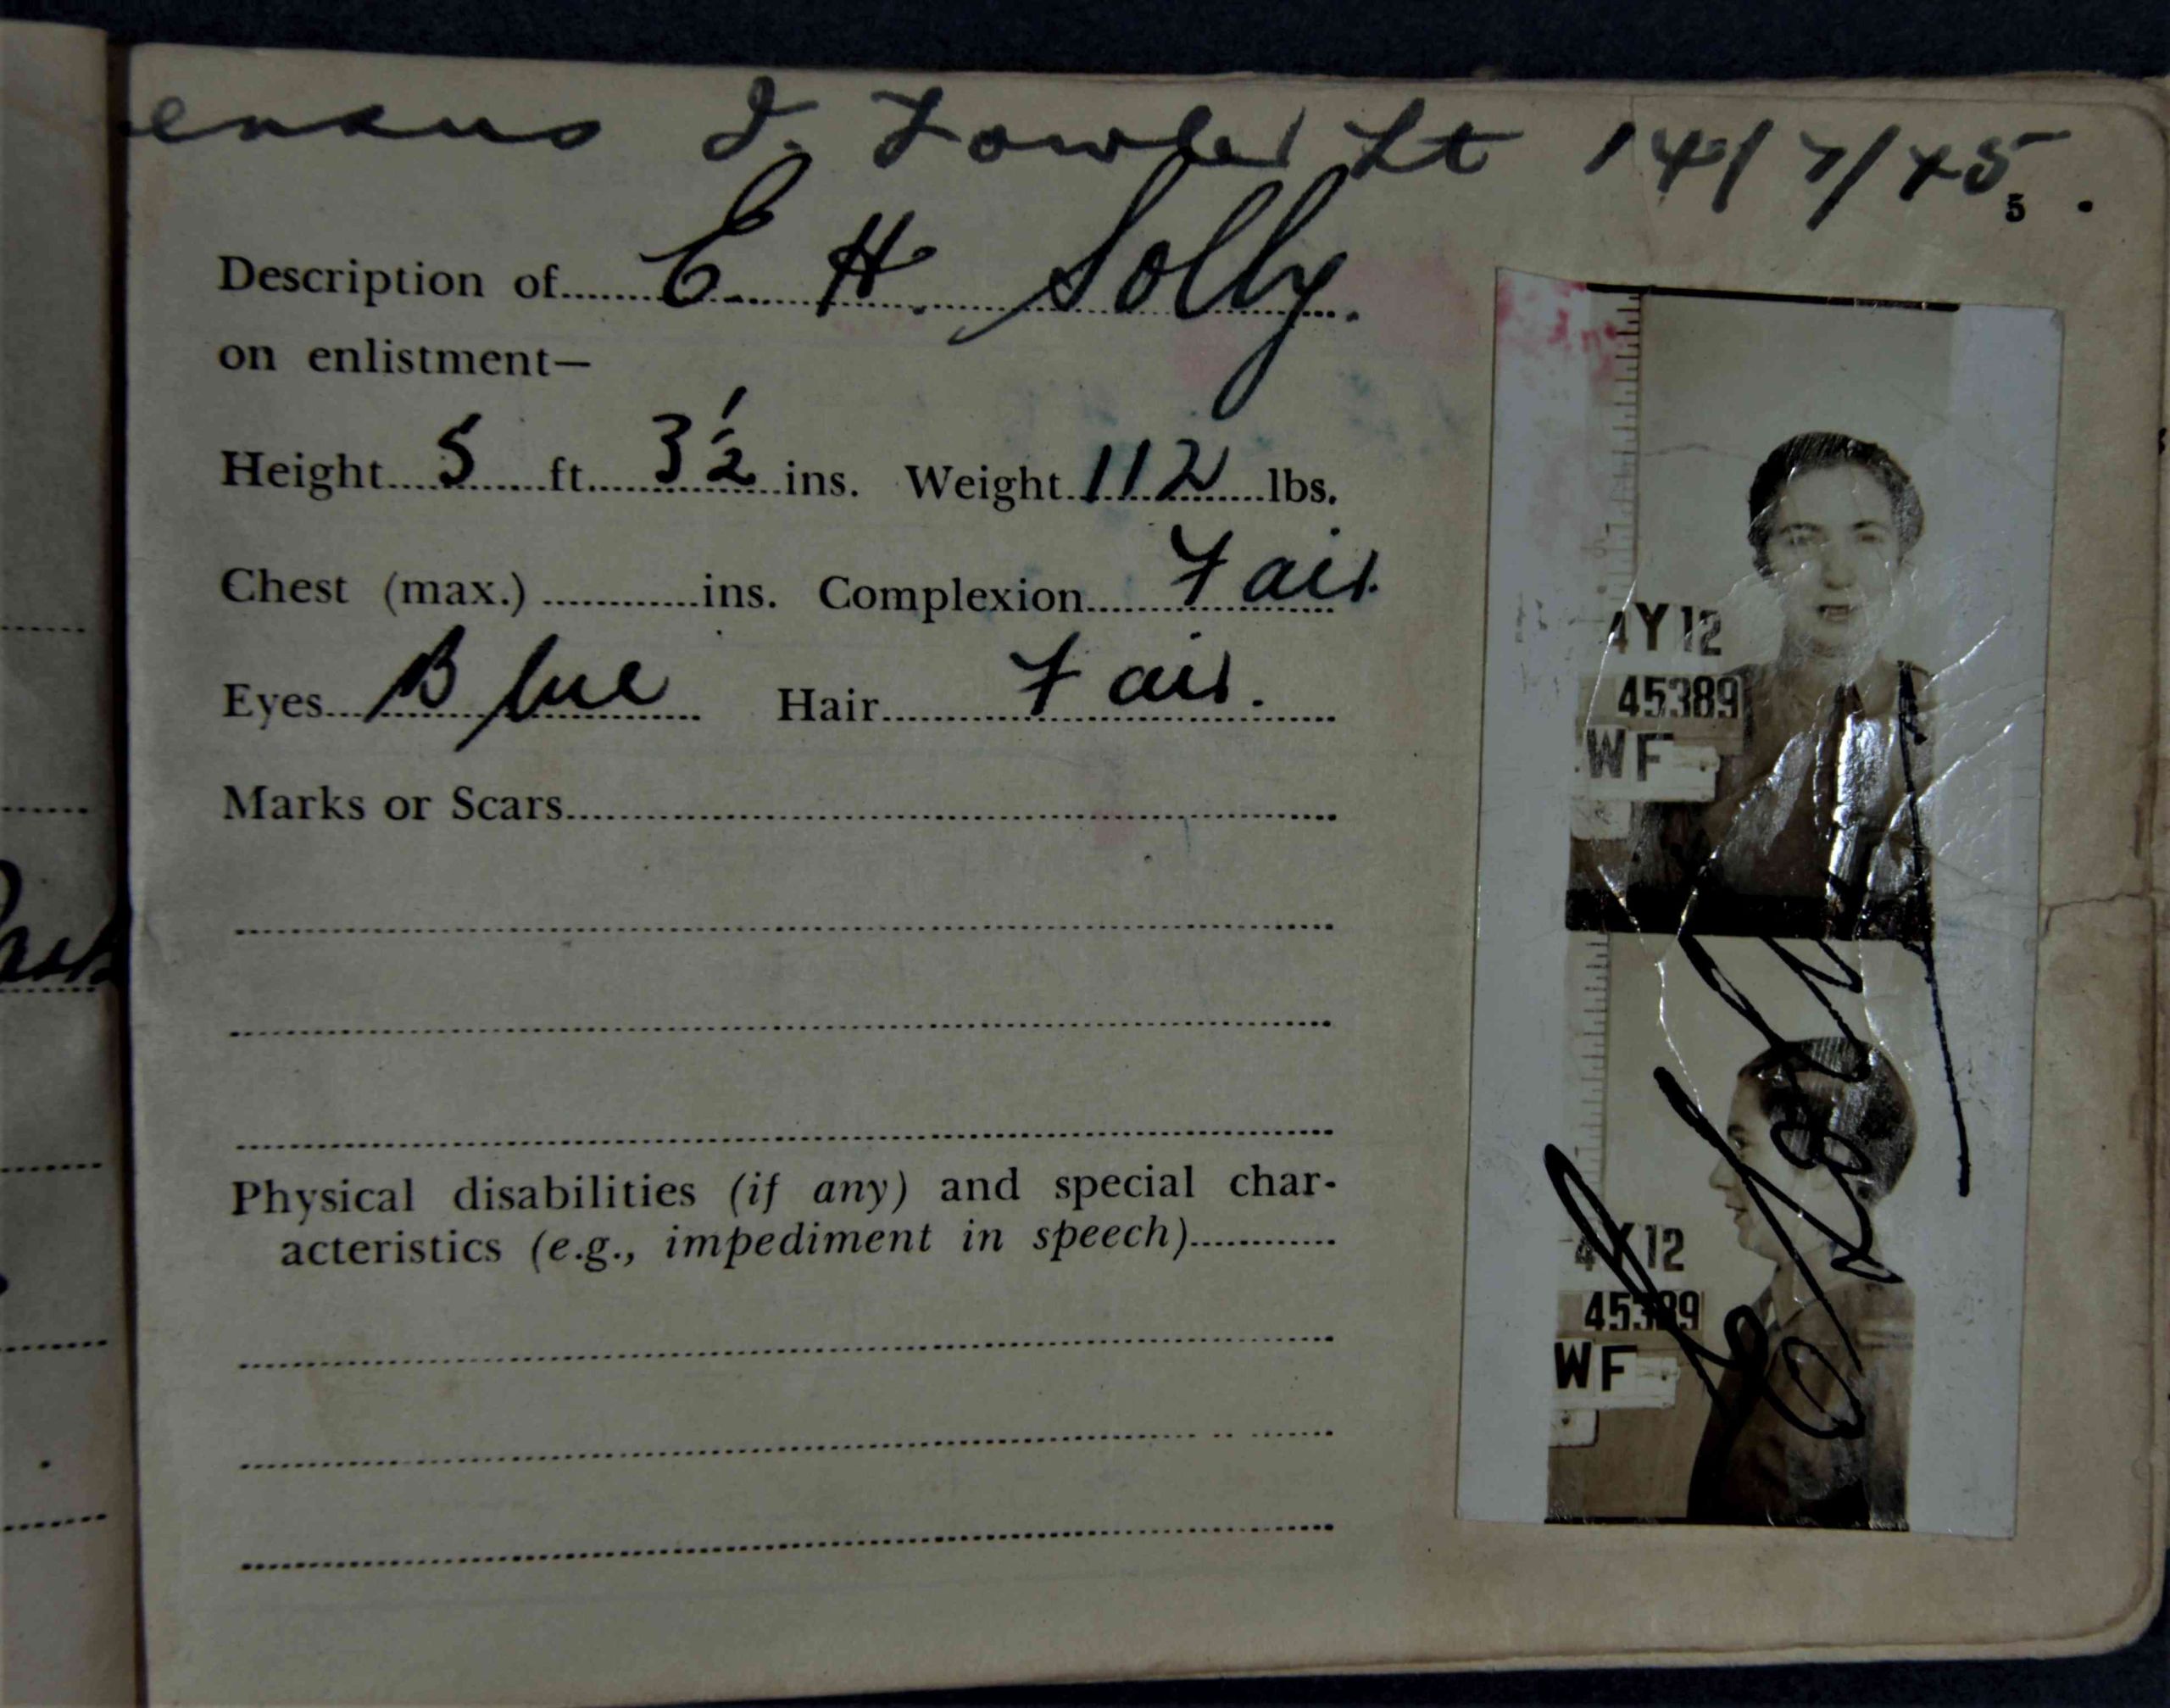 J. Fowler Lt 14/7/45.
5
Description of E H Solly.
on enlistment—
Height 5 ft. 3½ ins. Weight 112 lbs.
Chest (max.) ins. Complexion Fair.
Eyes Blue Hair Fair.
Marks or Scars
Physical disabilities (if any) and special char-
acteristics (e.g., impediment in speech)
4Y12
45389
WF
4Y12
45389
WF
E H Solly